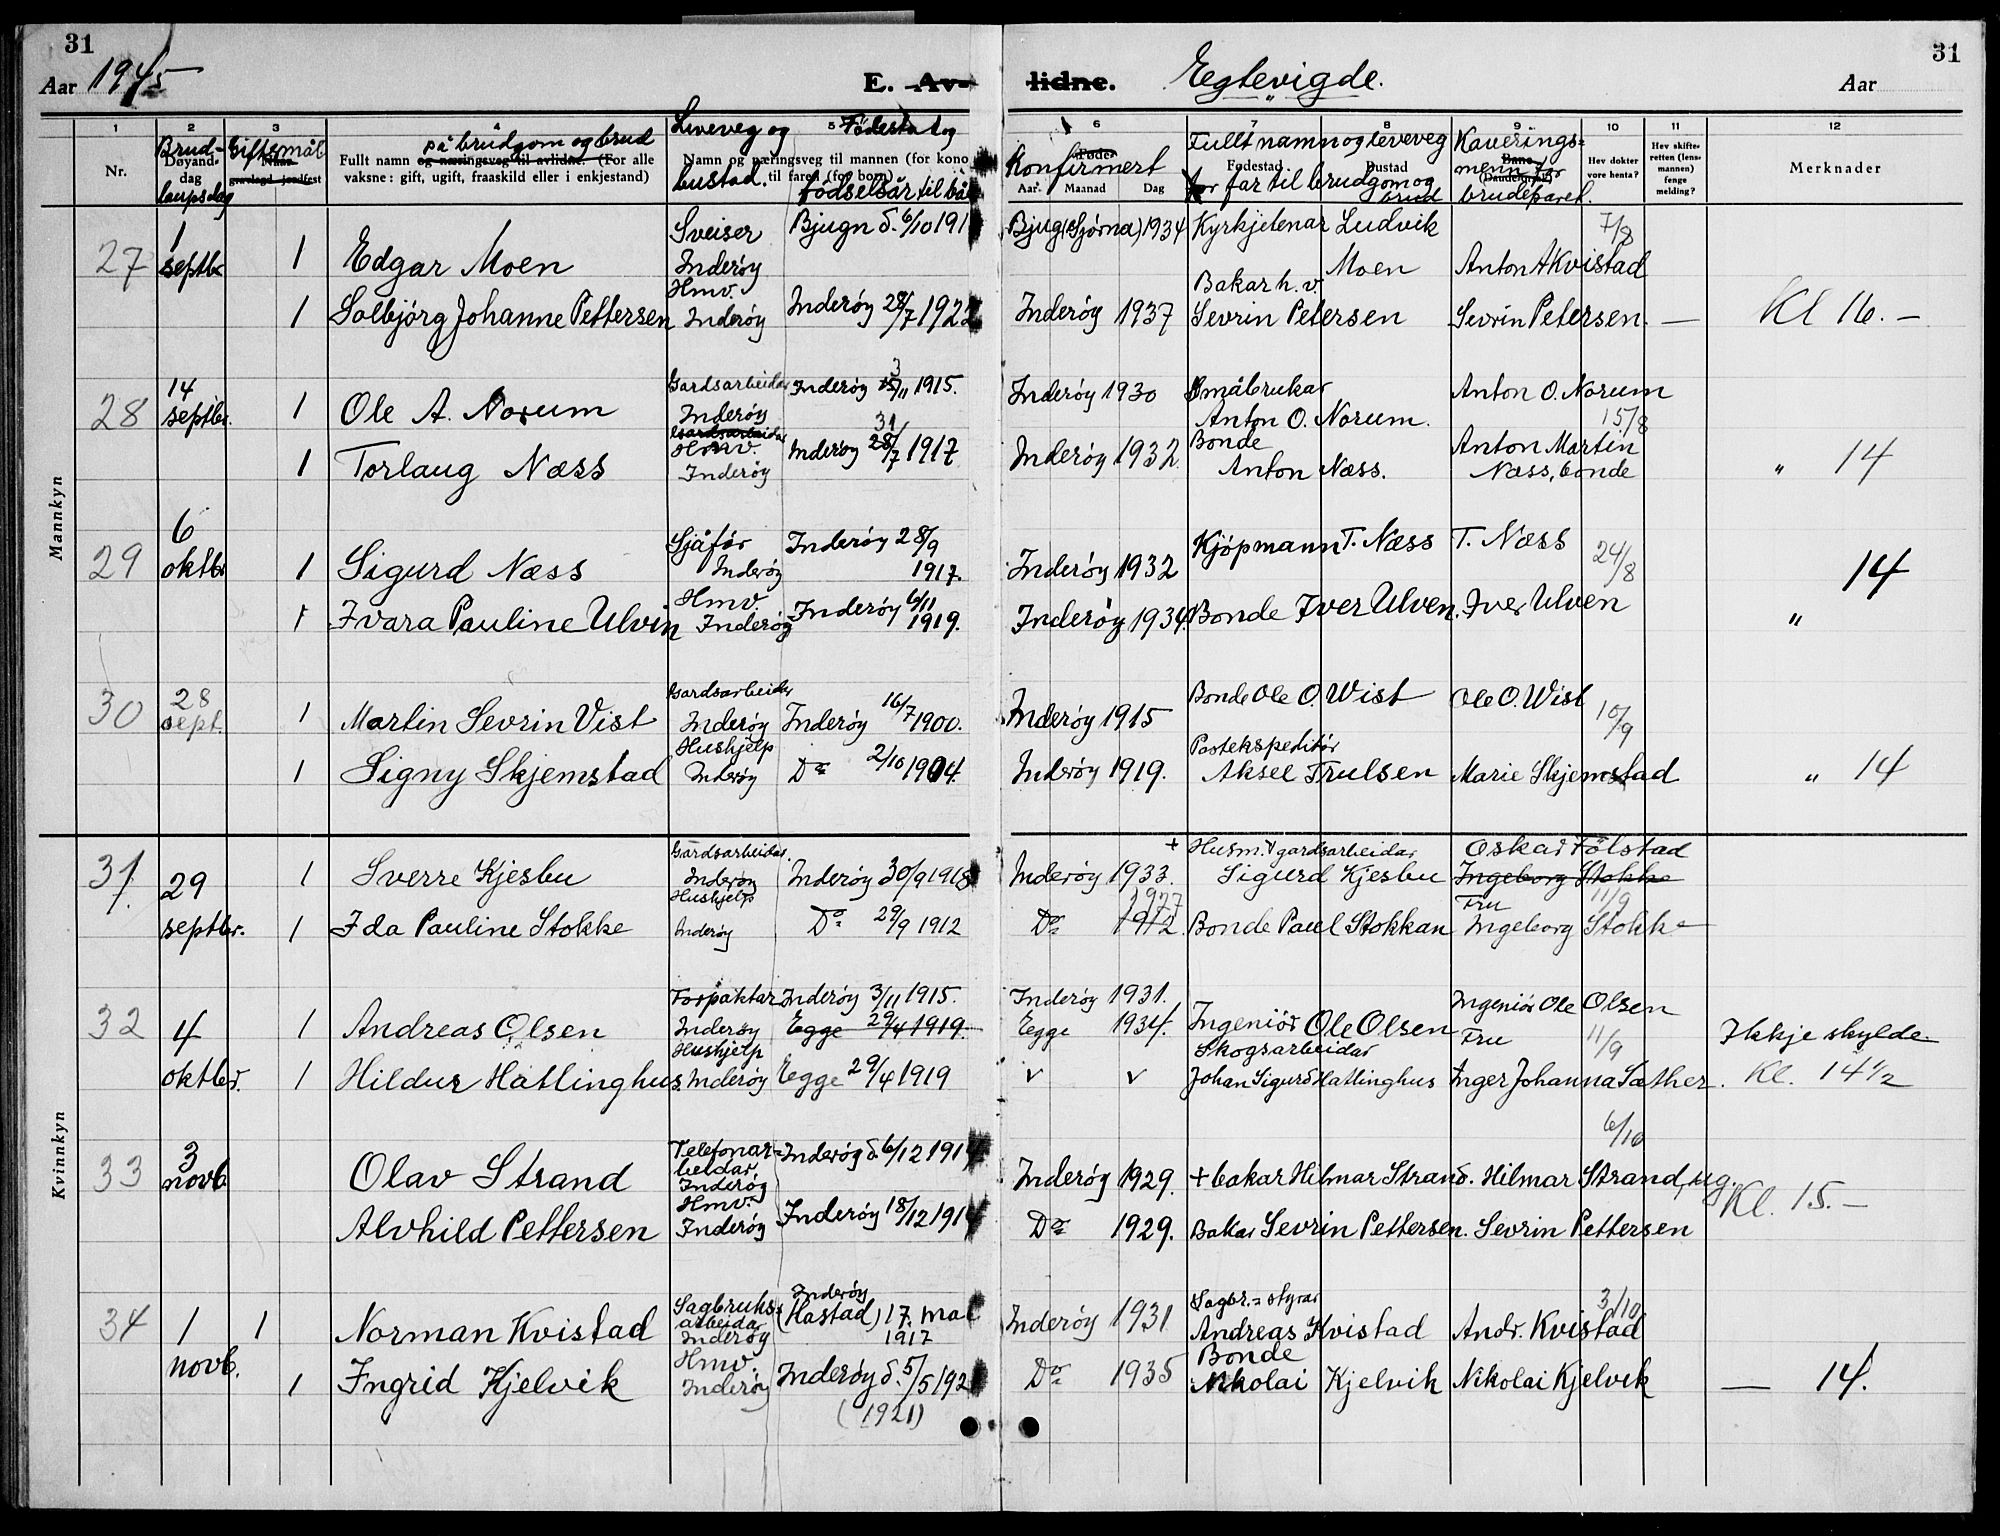 31
31
Aar 1945
E. Av-
lidne. Egtevigde.
Aar
1 2 3 4 5 6 7 8 9 10 11 12
Nr.
Brud-
Døyand-
dag
laupsdag
Giftemål
gravlagd jordfest
på brudgom og brud
Fullt namn og næringsveg til avlidne. (For alle
vaksne: gift, ugift, fraaskild eller i enkjestand)
Leveveg og Fødestad og
Namn og næringsveg til mannen (for kono
bustad. til faren (for born)
fødselsår til
Føde-
Konfirmert
Aar. Maanad Dag
Fullt namn og leveveg
Fødestad Bustad
for far til brudgom og
brud
Kaverings-
Bane
menn for
(Daudeorsak)
brudeparet.
Hev dokter
vore henta?
Hev skifte-
retten (lens-
mannen)
fenge
melding?
Merknader
Mannkyn
27 1 septbr 1 Edgar Moen Sveiser Inderøy Bjugn d. 6/10 191 Bjugn (Stjørna) 1934 Kyrkjetenar Ludvik Moen Anton A Kvistad 7/8
1 Solbjørg Johanne Pettersen Hmv. Inderøy Inderøy 28/7 1922 Inderøy 1937 Bakar h. v Sevrin Petersen Sevrin Petersen. — Kl 16. —
28 14 septbr. 1 Ole A. Norum Gardsarbeidar Inderøy Inderøy 3/11 1915. Inderøy 1930 Småbrukar Anton O. Norum. Anton O. Norum 15/8
1 Torlaug Næss Gardsarbeidar Hmv. Inderøy Inderøy 31 28/7 1917 Inderøy 1932. Bonde Anton Næss. Anton Martin Næss, bonde " 14
29 6 oktbr 1 Sigurd Næss Sjåfør Inderøy Inderøy 28/9 1917. Inderøy 1932 Kjøpmann T. Næss T. Næss 24/8 14
1 Ivara Pauline Ulvin Hmv. Inderøy Inderøy 6/11 1919. Inderøy 1934. Bonde Iver Ulven. Iver Ulven "
30 28 sept. 1 Martin Sevrin Vist Gardsarbeider Inderøy Inderøy 16/7 1900. Inderøy 1915 Bonde Ole O. Wist Ole O. Wist 10/9
1 Signy Skjemstad Hushjelp Inderøy Do 2/10 1904. Inderøy 1919. Postekspeditør Aksel Trulsen Marie Skjemstad " 14
Kvinnkyn
31. 29 septbr. 1 Sverre Kjesbu Gardsarbeidar. Inderøy Inderøy 30/9 1918 Inderøy 1933. + Husm. & gardsarbeidar Sigurd Kjesbu Oskar Følstad Ingeborg Stokke 11/9
1 Ida Pauline Stokke Hushjelp Inderøy Do 29/9 1912 Do 1927 1912. Bonde Paul Stokkan Fru Ingeborg Stokke
32 4 oktbr. 1 Andreas Olsen Forpaktar Inderøy Inderøy 3/11 1915. Egge 29/4 1919. Inderøy 1931. Egge 1934. Ingeniør Ole Olsen Ingeniør Ole Olsen 11/9 Ikkje skylde.
1 Hildur Hatlinghus. Hushjelp Inderøy Egge 29/4 1919 v v Skogsarbeidar Johan Sigurd Hatlinghus Fru Inger Johanna Sæther. Kl. 14 1/2
33 3 novb. Olav Strand Telefonar-beidar. Inderøy Inderøy d. 6/12 1914 Inderøy 1929. + bakar Hilmar Strand. Hilmar Strand, 6/10
Alvhild Pettersen Hmv. Inderøy Inderøy 18/12 1914 Do 1929. Bakar Sevrin Pettersen. Sevrin Pettersen Kl. 15. —
34 1 novb. 1 Norman Kvistad Sagbruks-arbeidar Inderøy Inderøy (Hastad) 17. mai 1917 Inderøy 1931 Sagbr.-styrar Andreas Kvistad Andr. Kvistad 3/10
1 Ingrid Kjelvik Hmv. Inderøy Inderøy d. 5/5 192 (1921) Do 1935 Bonde Nikolai Kjelvik Nikolai Kjelvik — 14.